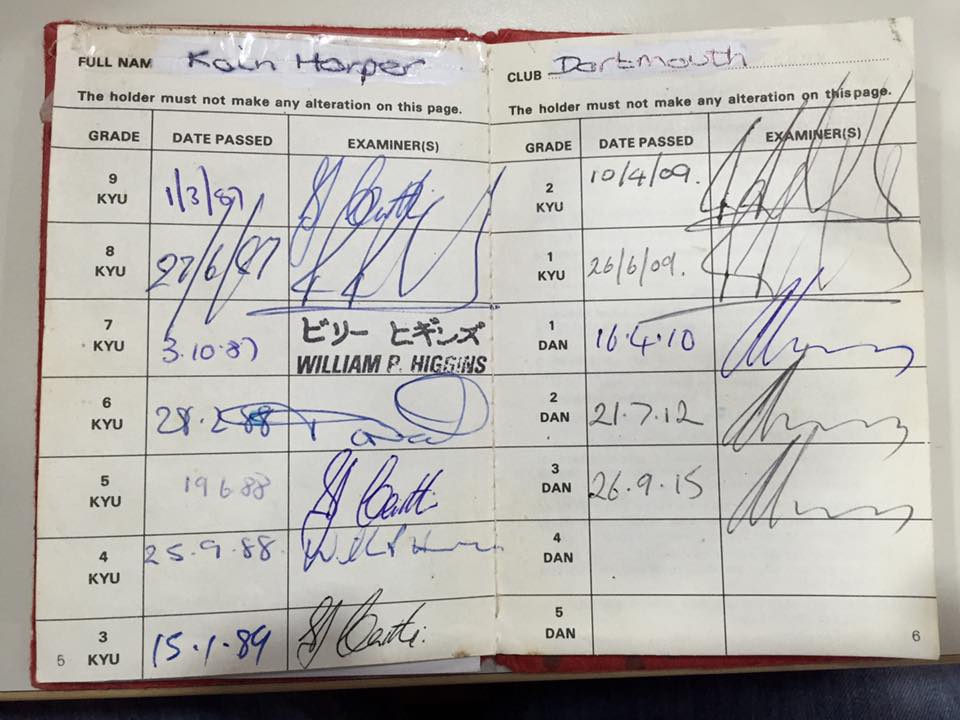 FULL NAM Koln Harper
The holder must not make any alteration on this page.
GRADE DATE PASSED EXAMINER(S)
9 KYU 1/3/87
8 KYU 27/6/87
7 KYU 3.10.87 ビリー ヒギンズ
WILLIAM P. HIGGINS
6 KYU 28.2.88
5 KYU 19 6 88
4 KYU 25.9.88
3 KYU 15.1.89
5
CLUB Dartmouth
The holder must not make any alteration on this page.
GRADE DATE PASSED EXAMINER(S)
2 KYU 10/4/09.
1 KYU 26/6/09.
1 DAN 16.4.10
2 DAN 21.7.12
3 DAN 26.9.15
4 DAN
5 DAN
6